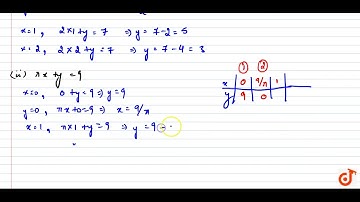 x=1, 2×1+y=7 ⇒ y=7-2=5
x=2, 2×2+y=7 ⇒ y=7-4=3
(ii) πx+y=9
x=0, 0+y=9 ⇒ y=9
y=0, πx+0=9 ⇒ x=9/π
x=1, π×1+y=9 ⇒ y=9-
① ②
x 0 9/π 1
y 9 0